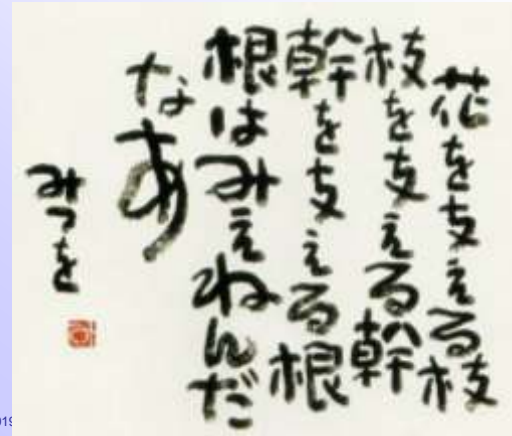 花を支える枝
枝を支える幹
幹を支える根
根はみえねんだ
なあ
みつを
019